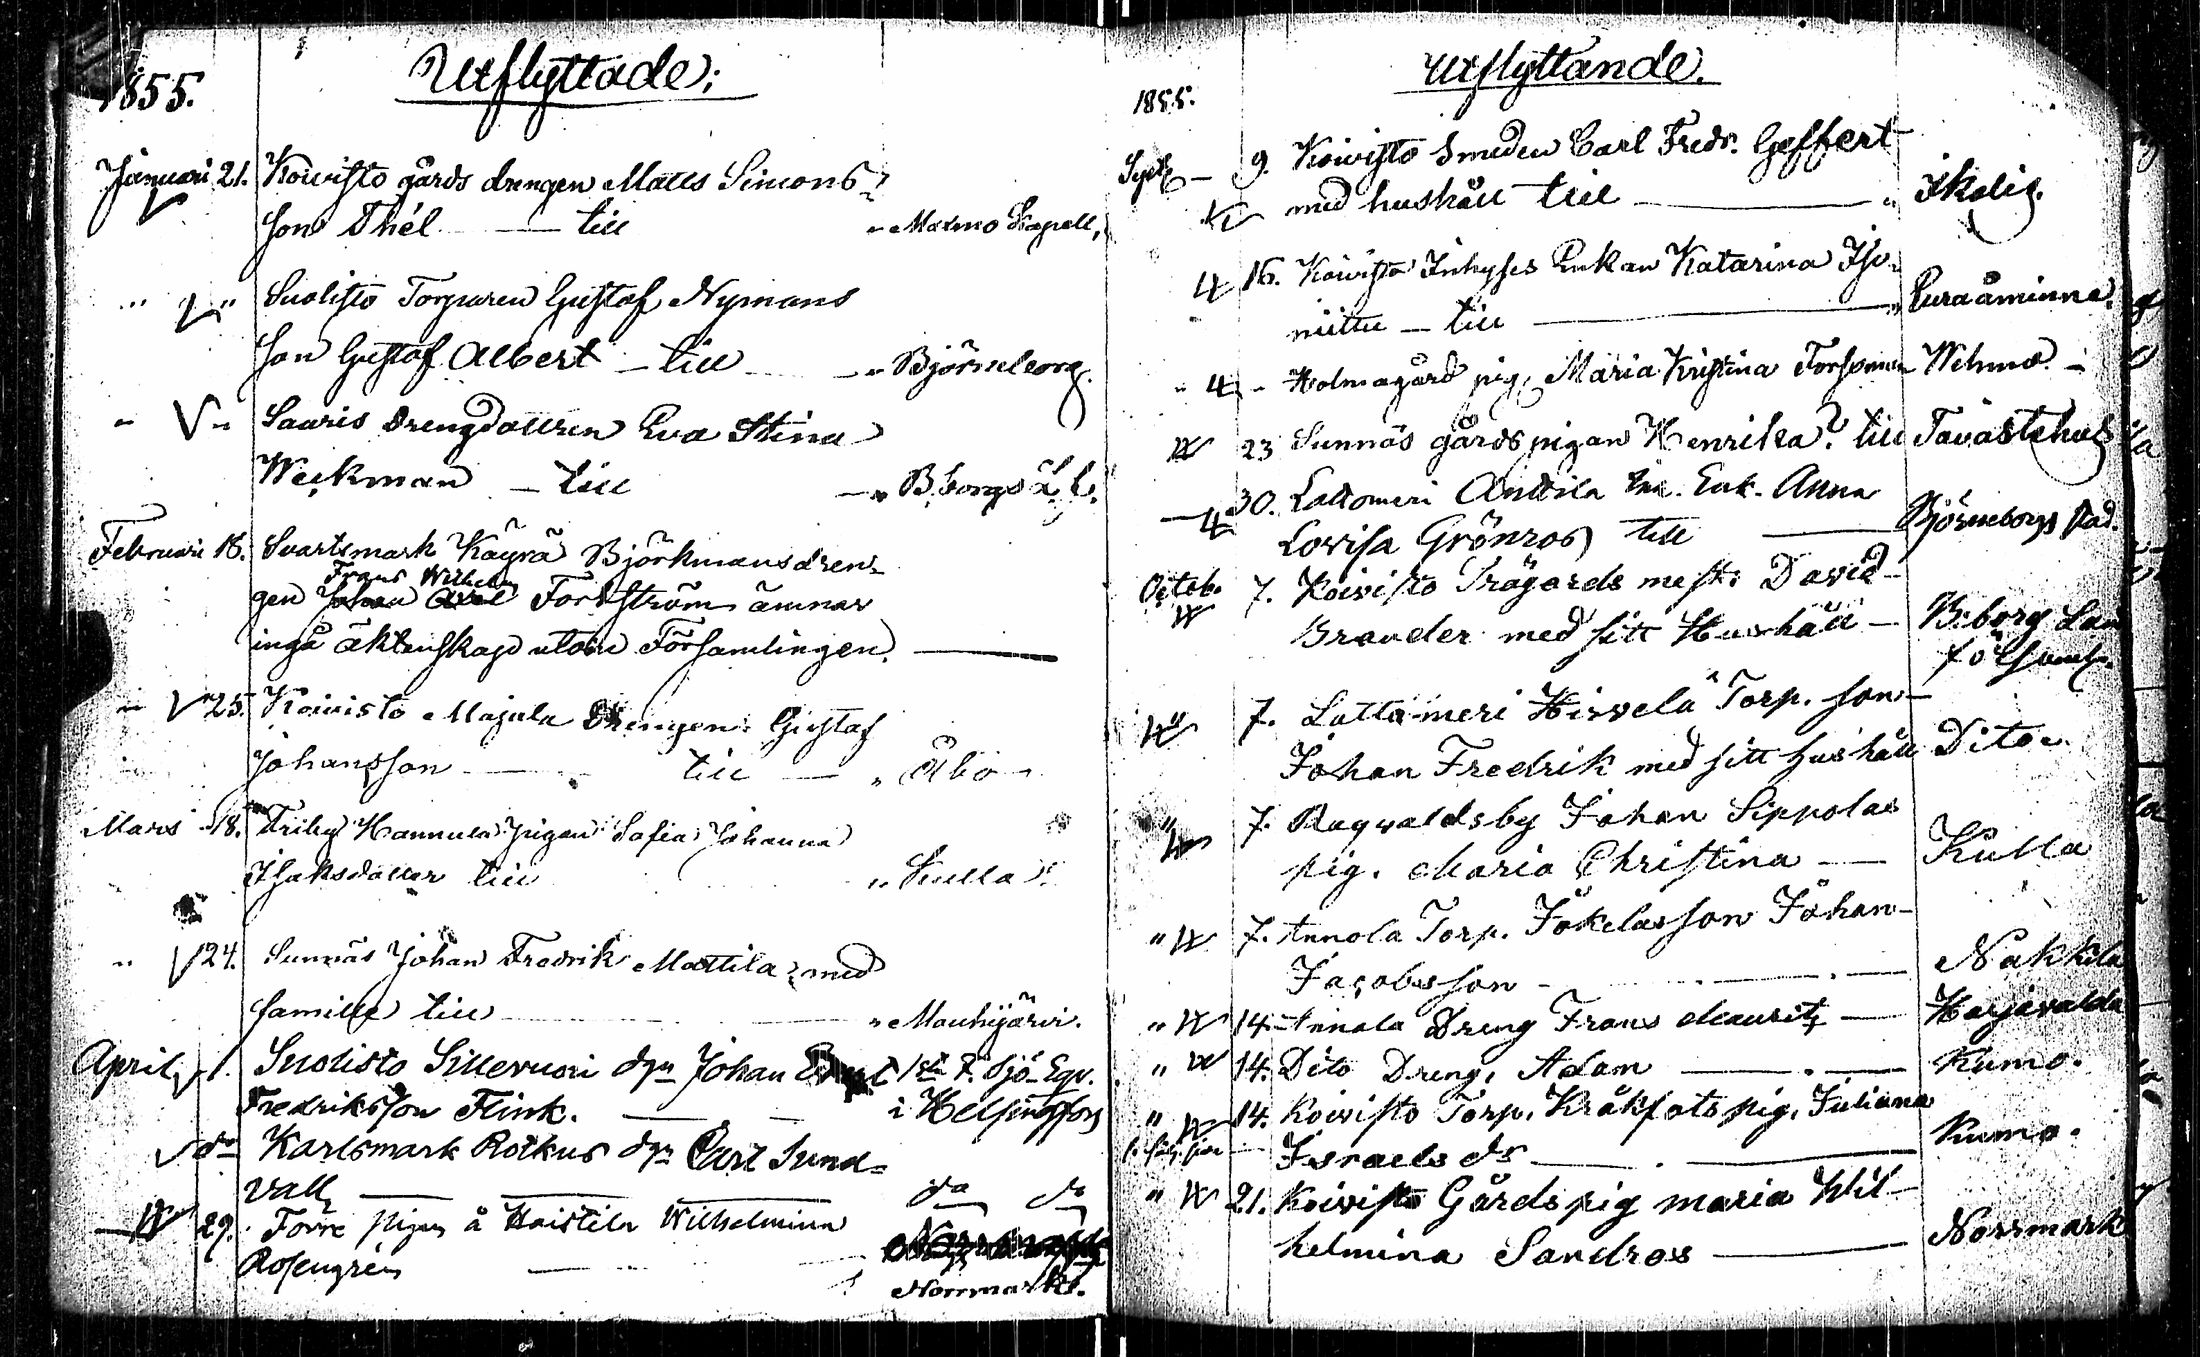 Utflyttade:
1855.
Januari 21. Koivisto gårds drengen Matts Simons-
son Thél — till „ Masmo Kapell,
" " Suolisto Torparen Gustaf Nymans
son Gustaf Albert — till — „ Björneborg.
" " Saaris Drengdottren Eva Stina
Weckman — till — „ B.borgs L. f.
Februari 18. Svartsmark Käyrä Björkmans dren-
Frans Wilhelm
gen Johan Axel Forsström ämnar
ingå äktenskap utom Församlingen. —
" 25. Koivisto Majula Drengen Gustaf
Johansson — till — „ Åbo
Mars 18. Friby Hannula pigan Sofia Johanna
Isaksdotter till „ Kulla.
" 24. Sunnäs Johan Fredrik Mattila med
famille till „ Mouhijärvi.
April 1. Suolisto Sillevuori dgn Johan 1sta F. Sjö-Eqv.
Fredriksson Flink. — i Helsingfors
do Karlsmark Rotkus dgn Carl Sund-
vall — do do
29. Torre pigan å Haistila Wilhelmina
Rosengrén —
Norrmark.
Utflyttande.
1855.
Sept. — 9. Koivisto Smeden Carl Fredr. Geffert
med hushåll till — „ Ikalis.
16. Koivisto Inhyses Enkan Katarina Iso-
niittu — till — „ Euraåminne.
" - Holmagård pig. Maria Kristina Forsman Wehmo. -
23 Sunnäs gårds pigan Henrika? till Tavastehus
30. Lattomeri Anttila Enk. Anna
Lovisa Grönros till — Björneborgs stad.
Octob. 7. Koivisto Trägårds mest. David
Brander med sitt Hushåll — B:borg Land
församl.
" 7. Lattomeri Hirvelä Torp. son
Johan Fredrik med sitt hushåll Dito.
" 7. Ragvaldsby Johan Sippolas
pig. Maria Christina — Kulla
" 7. Annola Torp. Jokelas son Johan
Jacobsson — Nakkila
" 14. Annola Dreng Frans Mauritz — Harjavalda
" 14. Dito Dreng. Adam — Kumo.
" 14. Koivisto Torp. Kråkfots pig. Juliana
Israels dr — Kumo.
" 21. Koivisto Gårds pig Maria Wil-
helmina Sandros — Norrmark